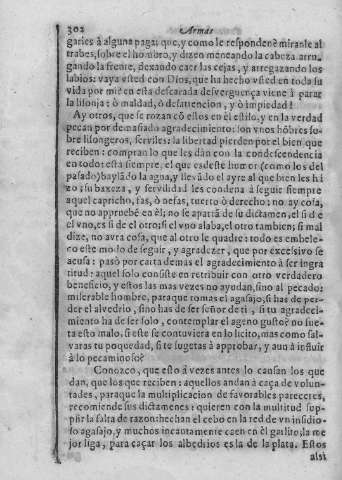 302 Armas
garles à alguna paga: que, y como le respondenè miranle al
trabes, sobre el hombro, y dizen meneando la cabeza arru-
gando la frente, dexando caer las cejas, y arregazando los
labios: vaya vsted con Dios, que ha hecho vsted en toda su
vida por mi? en esta descarada desverguença viene à parar
la lisonja: ò maldad, ò desatencion, y ò impiedad!
Ay otros, que se rozan cõ estos en el estilo, y en la verdad
pecan por demasiado agradecimiento: son vnos hõbres so-
bre lisongeros, serviles: la libertad pierden por el bien que
reciben: compran lo que les dan con la condescendencia
en todo: esta siempre, el que es deste humor (como los del
pasado) baylãdo la agua, y llevãdo el ayre al que bien les hi
zo; su baxeza, y servilidad les condena à seguir siempre
aquel capricho, fas, ò nefas, tuerto ò derecho: no ay cosa,
que no apruebẽ en èl; no se apartã de su dictamen, el si de
el vno, es si de el otro; si el vno alaba, el otro tambien; si mal
dize, no avra cosa, que al otro le quadre: todo es embele-
co este modo de seguir, y agradezer, que por excesivo se
acusa: pasò por carta de mas el agradecimiento à ser ingra
titud: aquel solo consiste en retribuir con otro verdadero
beneficio, y estos las mas vezes no ayudan, sino al pecado:
miserable hombre, paraque tomas el agasajo, si has de per-
der el alvedrio, sino has de ser señor de ti, si tu agradeci-
miento ha de ser solo, contemplar el ageno gusto? no sue-
ta esto malo, si este se contuviera en lo licito, mas como sal-
varas tu poquedad, si te sugetas à approbar, y aun à influir
à lo pecaminoso?
Conozco, que esto à vezes antes lo causan los que
dan, que los que reciben: aquellos andan à caça de volun-
tades, paraque la multiplicacion de favorables pareceres,
recomiende sus dictamenes: quieren con la multitud sup-
plir la falta de razon: hechan el cebo en la red de vn insidio-
so agasajo, y muchos incautamente caen en èl garlito; la me
jor liga, para caçar los albedrios es la de la plata. Estos
alsi